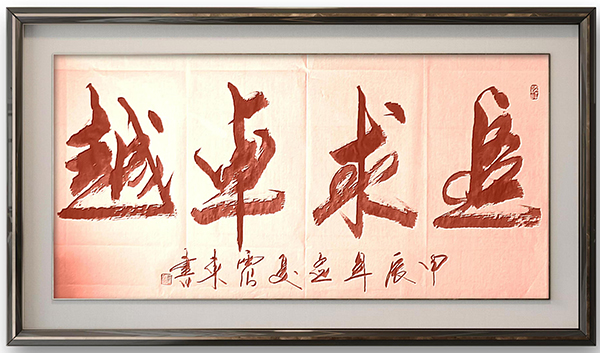 追求卓越
甲辰年立夏震東書